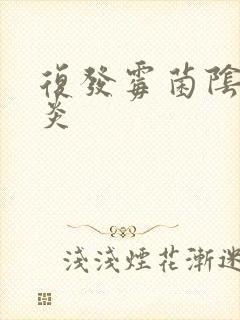 復發霉菌陰
炎
淺淺煙花漸迷